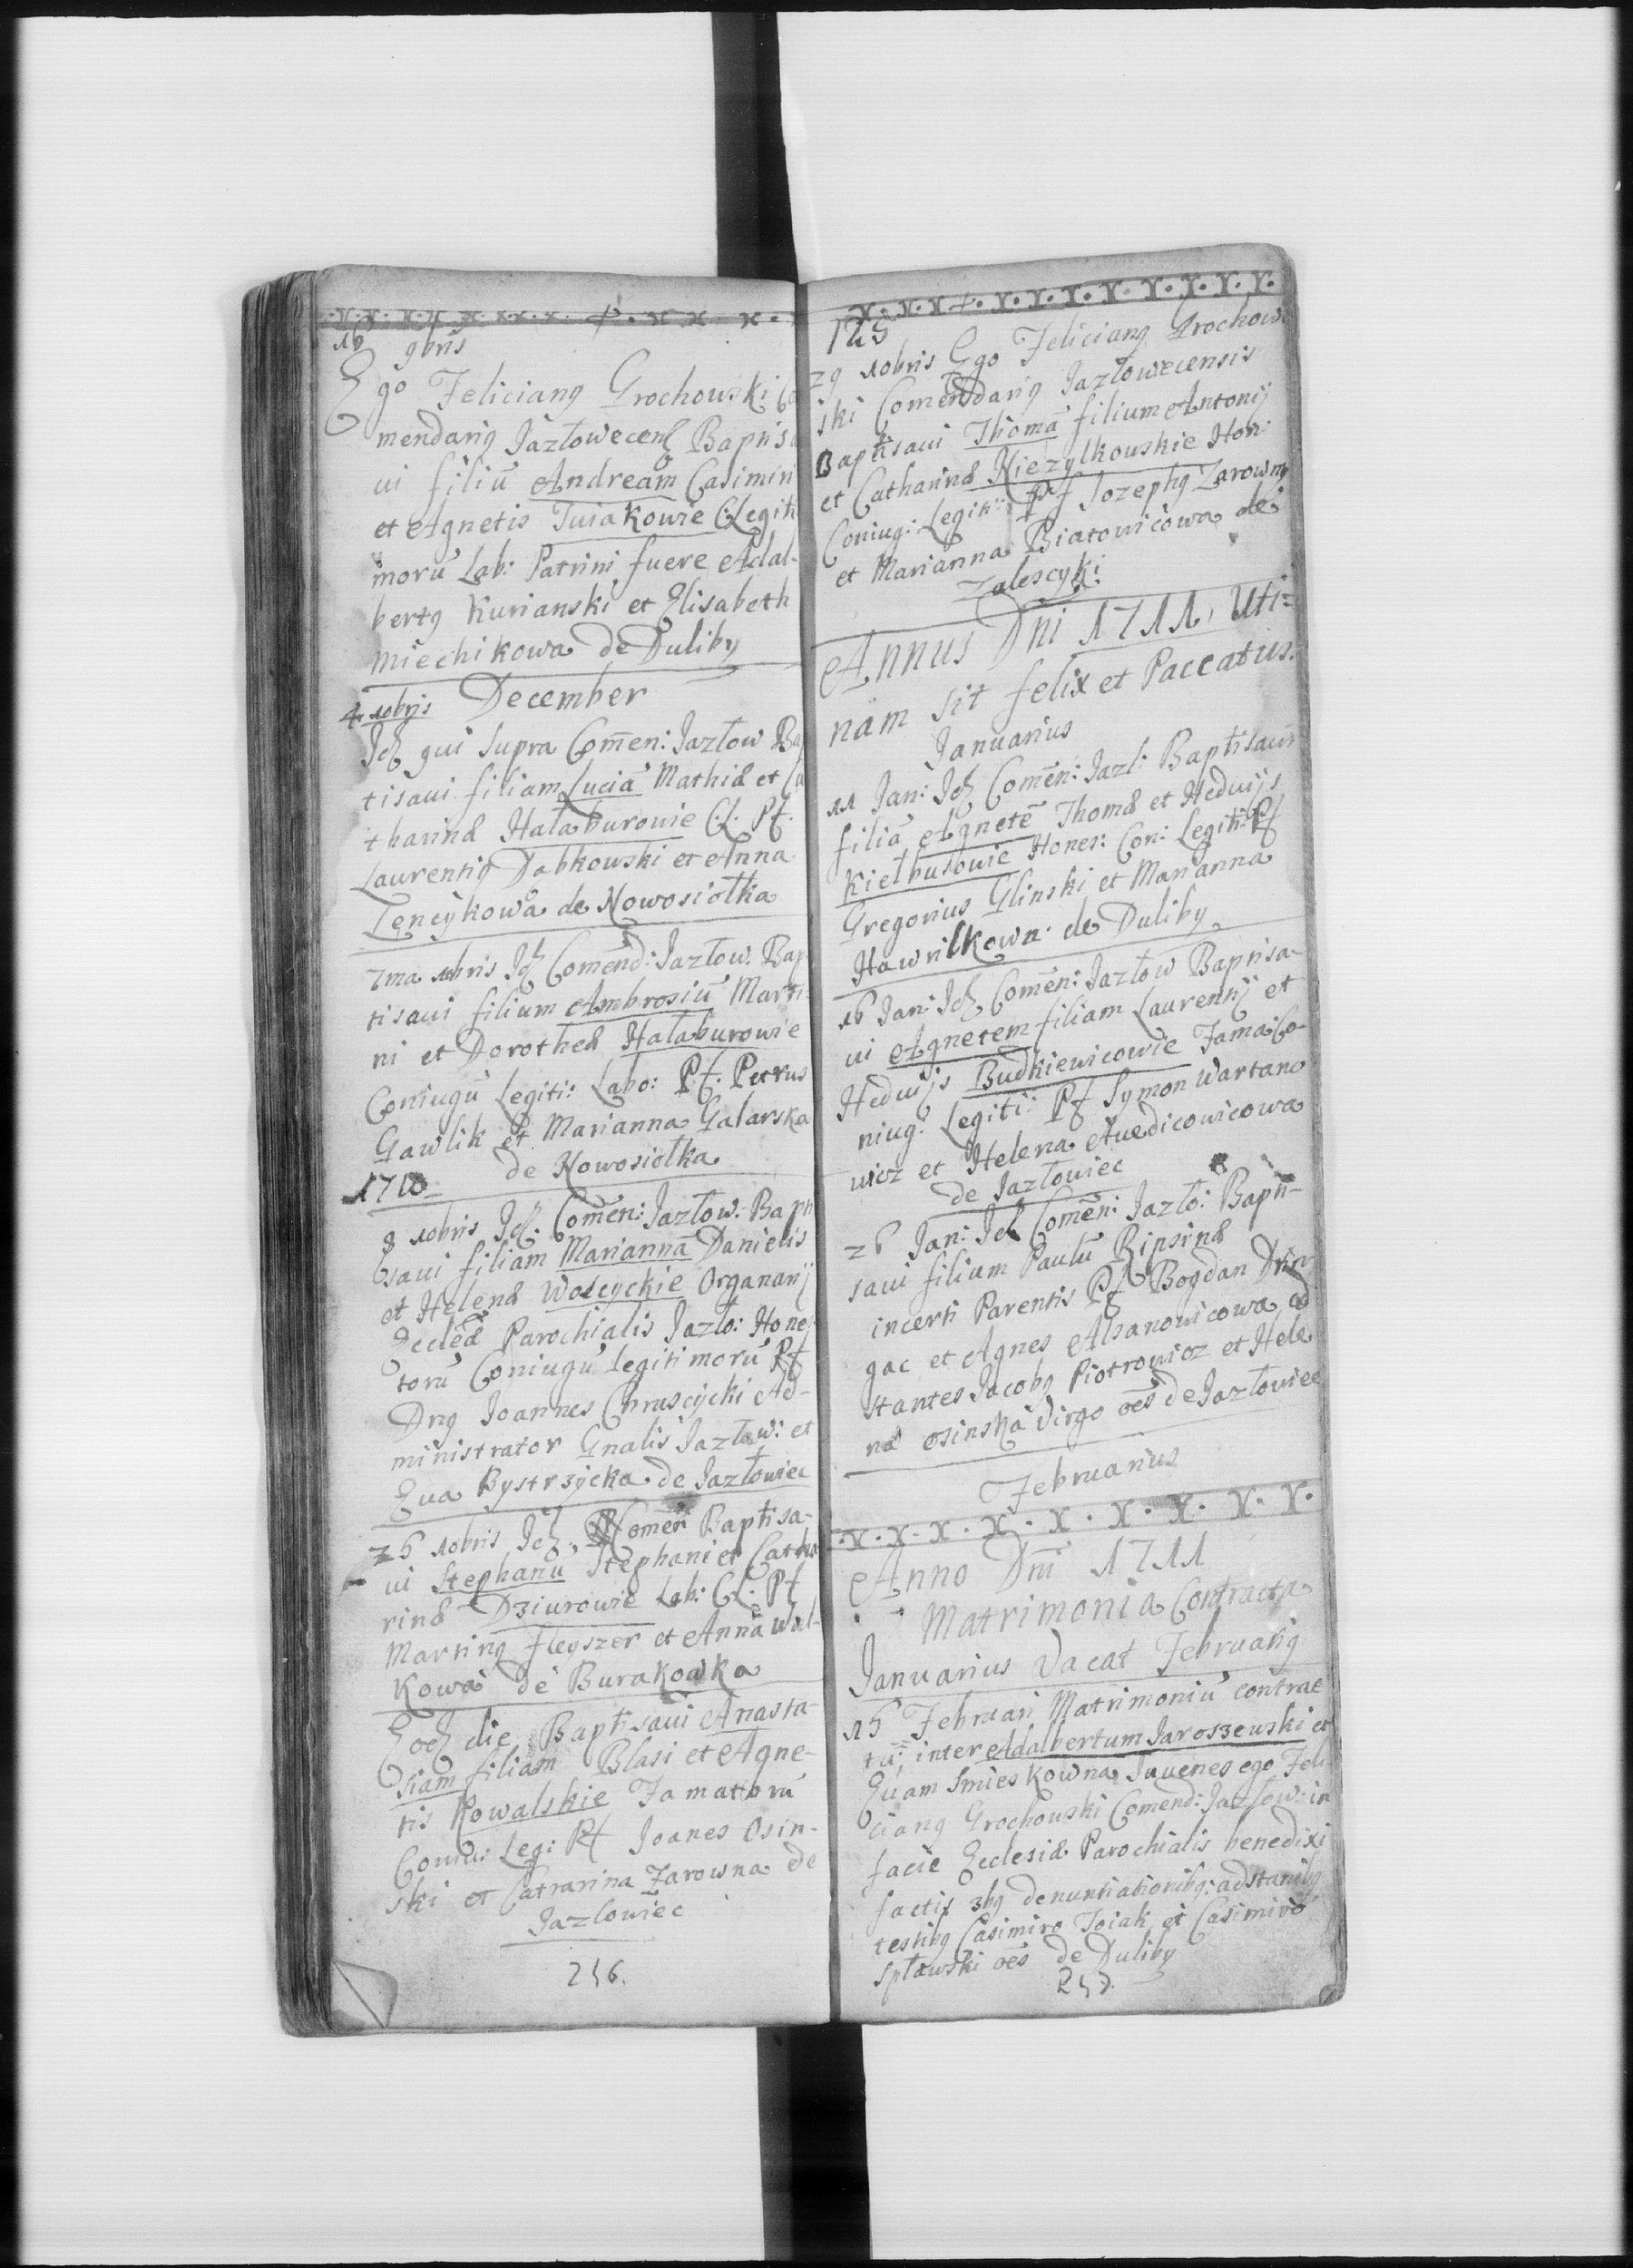 16 9bris
Ego Feliciang Grochowski Co
mendarig Jazłowecens Baptisa
ui filiū Andream Casimiri
et Agnetis Tuiakowie C: Legiti
morū Lab: Patrini fuere Adal-
bertg Kurianski et Elisabeth
Miechikowa de Duliby
4 10bris December
Id qui supra Comen: Jazłow Ba
tisaui filiam Luciā Mathiæ et Ca
tharinæ Hałaburowie C. L. Pf.
Laurentig Dabkowski et Anna
Zencykowa de Nowosiołka
7ma 10bris Id Comend: Jazłow. Bap
tisaui filium Ambrosiū Marti
ni et Dorotheæ Hałaburowie
Coniugū Legiti: Labo: Pf. Petrus
Gawlik et Marianna Galarska
de Nowosiołka
1710
8 10bris Id. Comen: Jazłow: Bapti
saui filiam Mariannā Danielis
et Helenæ Wołcyckie Organarij
Eccleæ Parochialis Jazło: Hones
torū Coniugū Legitimorū Pf
Dng Joannes Chruscycki Ad-
ministrator Gnalis Jazłow: et
Eua Bystrzycka de Jazłowiec
25 10bris Id Comen Baptisa-
ui Stephanū Stephani et Catha
rinæ Dziurowie Lab: C: L: Pf
Marting Fleyszer et Anna Wal-
kowa de Burakowka
Eod die Baptisaui Anasta-
siam filiam Blasi et Agne-
tis Kowalskie Famatorū
Coniu: Leg: Pf Joanes Osin-
ski et Catrarina Zarowna de
Jazłowiec
256.
125
29 10bris Ego Feliciang Grochow
ski Comendarig Jazłowecensis
Baptisaui Thomā filium Antonij
et Catharinæ Niezylkouskie Hon:
Coniug: Legiti: Pf Jozephg Zarowny
et Marianna Białowicowa de
Zalescyki
Annus Dni 1711, Uti=
nam sit felix et Paccatus.
Januarius
11 Jan: Id Comen: Jazł: Baptisaui
filiā Agnetē Thomæ et Heduijs
Kiełbusowie Hones: Con: Legiti: Pf
Gregorius Glinski et Marianna
Hawrilkowa de Duliby
16 Jan: Id Comen: Jazłow Baptisa-
ui Agnetem filiam Laurentij et
Heduijs Budkiewicowie Fama: Co-
niug: Legiti: Pf Symon Wartano
wicz et Helena Auedicowicowa
de Jazłowiec
26 Jan: Id Comen: Jazło: Bapti-
saui filium Paulū Ripsinæ
incerti Parentis Pf Bogdan Drin
gac et Agnes Alsanowicowa ad
stantes Jacobg Piotrowicz et Hele
na Osinska Virgo oēs de Jazłowiec
Februarius
Anno Dni 1711
Matrimonia Contracta
Januarius Vacat Februarig
15 Februari Matrimoniū contrac
tū: inter Adalbertum Jaroszewski et
Euam Smieskowna Juuenes ego Feli
ciang Grochouski Comend: Jazłow: in
facie Ecclesiæ Parochialis benedixi
factis 3bg denuntiationibg: adstantibg
testibg Casimiro Toiak et Casimiro
Spławski oēs de Duliby
257.